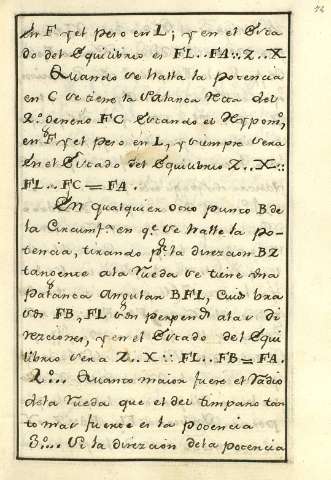 en F y el peso en L; y en el Esta
do del Equilibrio es FL..FA::Z..X
Quando se halla la potencia
en C se tiene la Palanca recta del
2º genero FC Estando el Hypomº
en F y el peso en L, y siempre sera
en el Estado del Equilibrio Z..X::
FL..FC=FA.
En qualquier otro punto B de
la Circumfª en qe se halle la po-
tencia, tirando pr la direzcion BZ
tangente a la rueda se tiene una
Palanca Angular BFL, cuios bra
zos FB, FL son perpends a las di
rezciones, y en el Estado del Equi
librio sera Z..X::FL..FB=FA.
2º... Quanto maior fuere el radio
de la rueda que el del timpano tan
to mas fuerte es la potencia
3º... Si la direzcion de la potencia